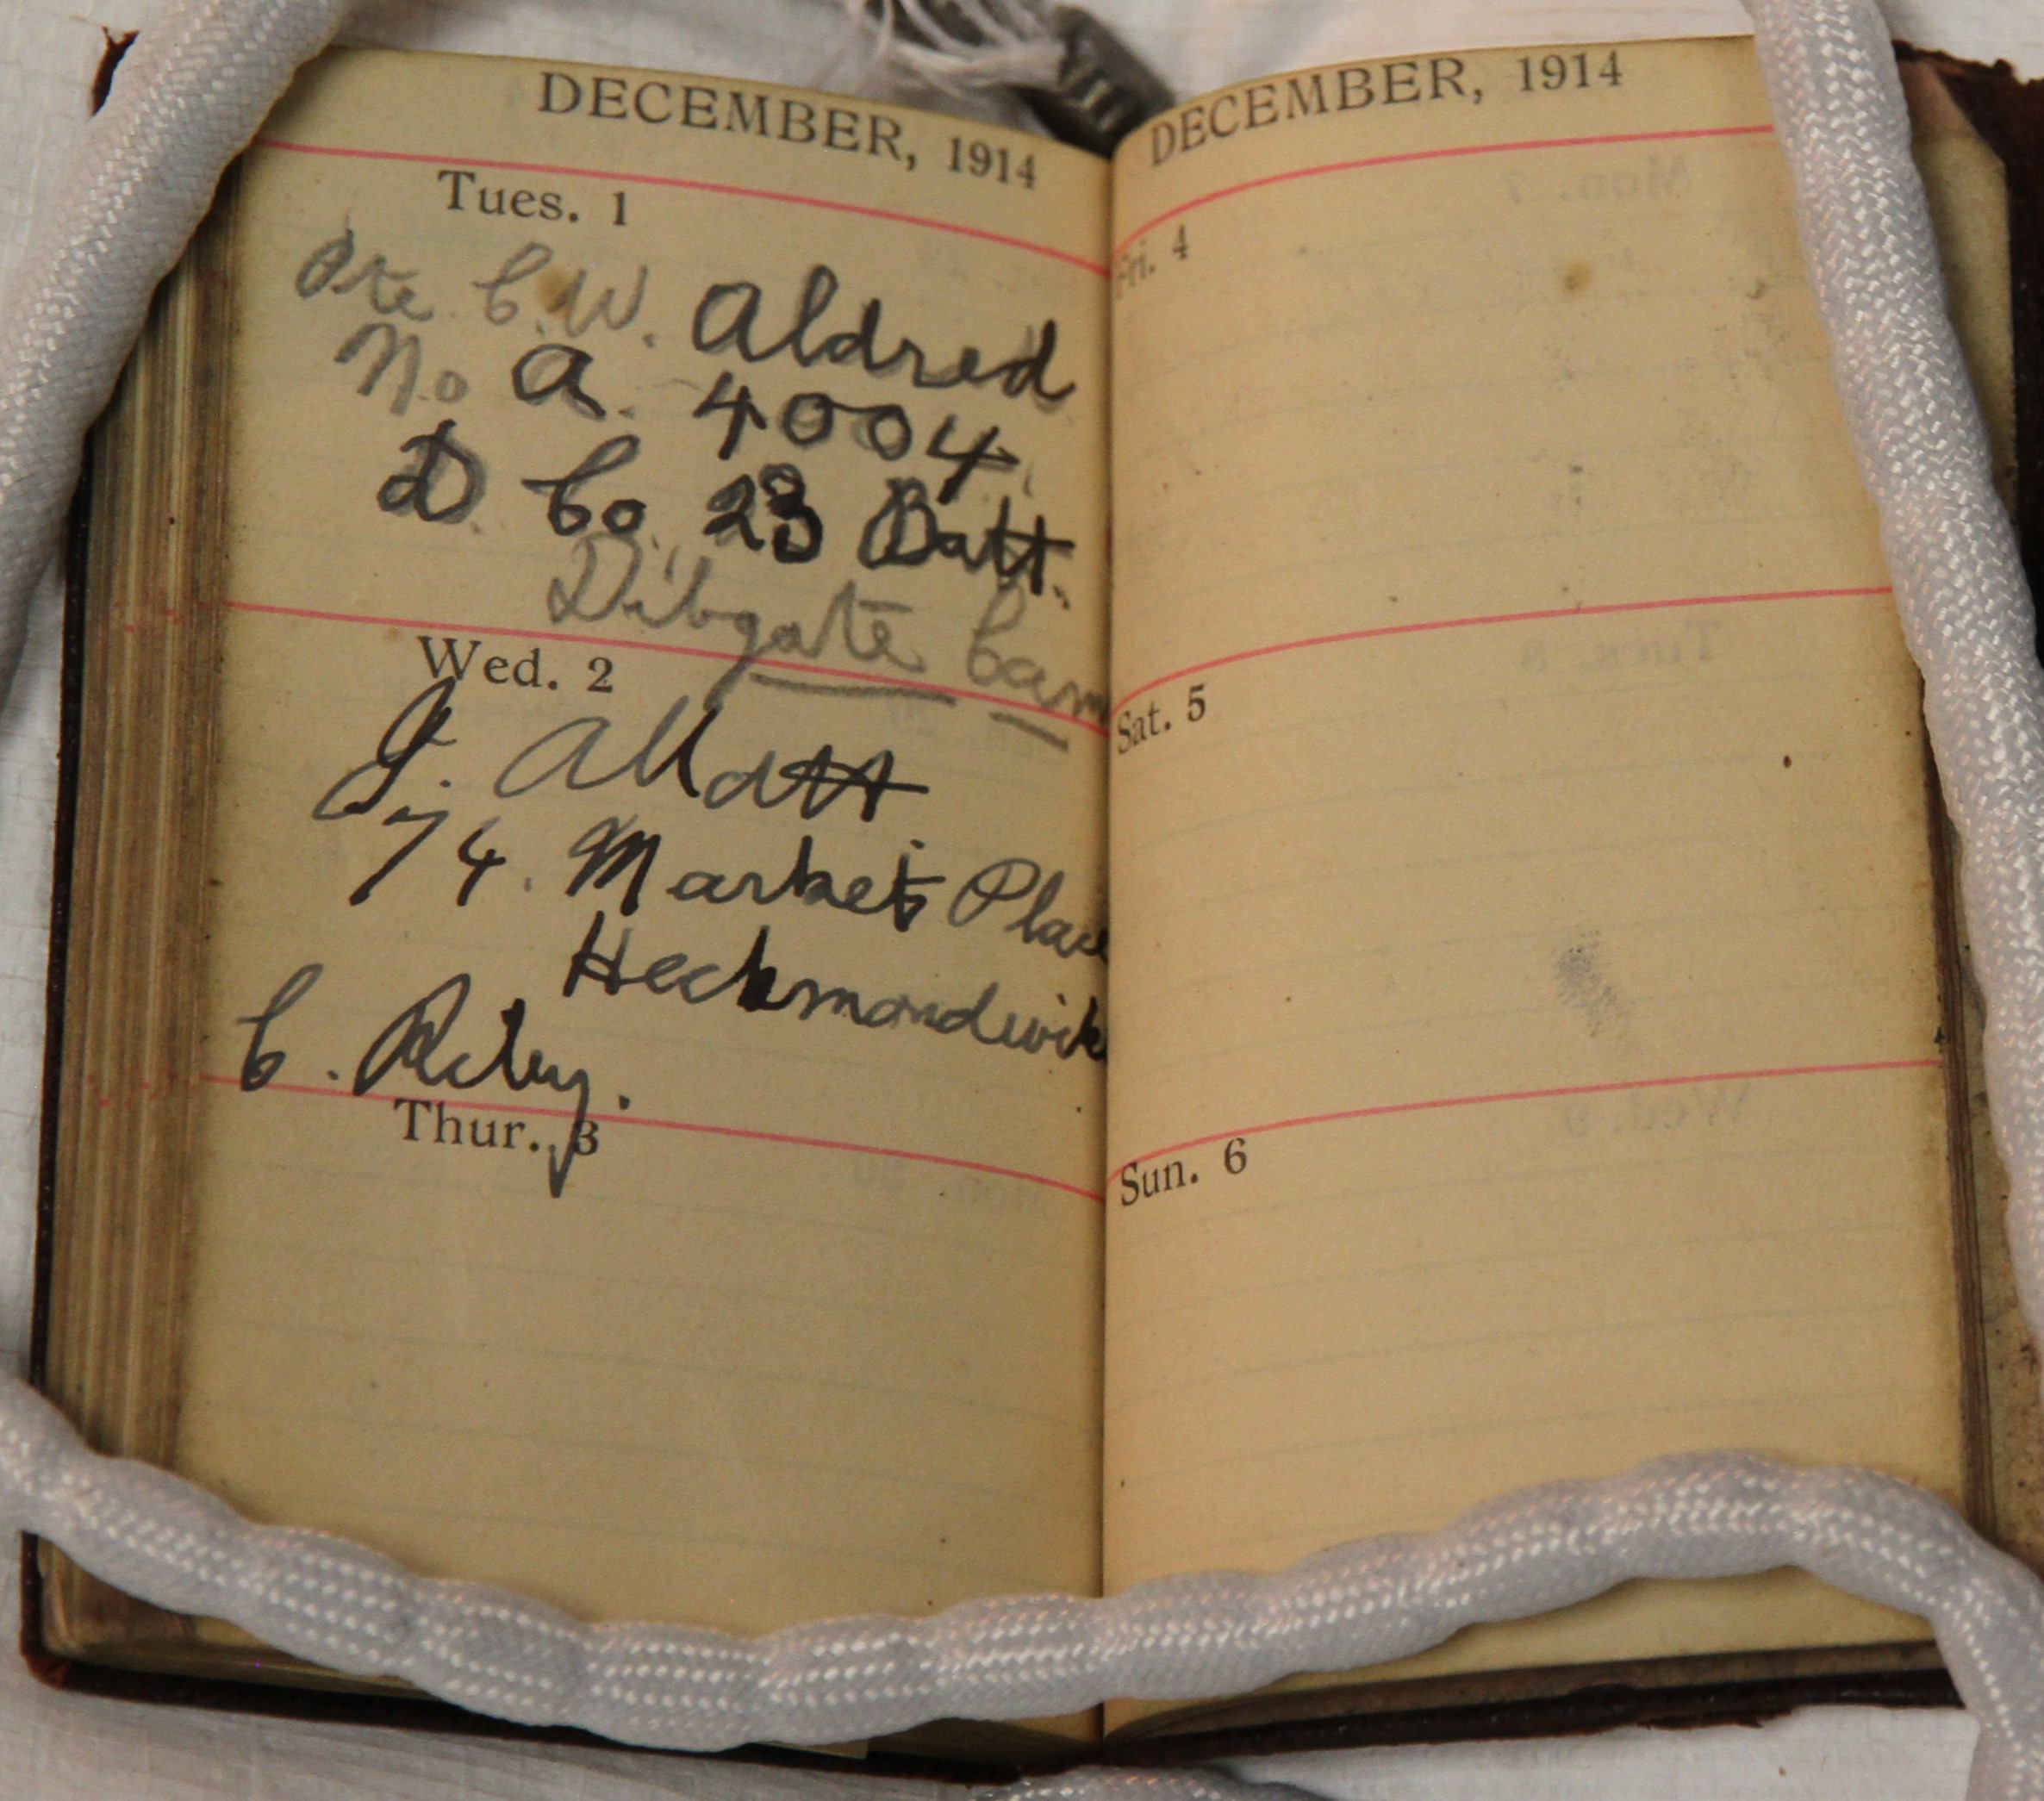 DECEMBER, 1914
Tues. 1
Pte. C. W. Aldred
No A. 4004.
D. Co. 23 Batt.
Dibgate Cam
Wed. 2
J. Allatt.
74. Market Place
Heckmondwik
C. Riley.
Thur. 3
DECEMBER, 1914
Fri. 4
Sat. 5
Sun. 6